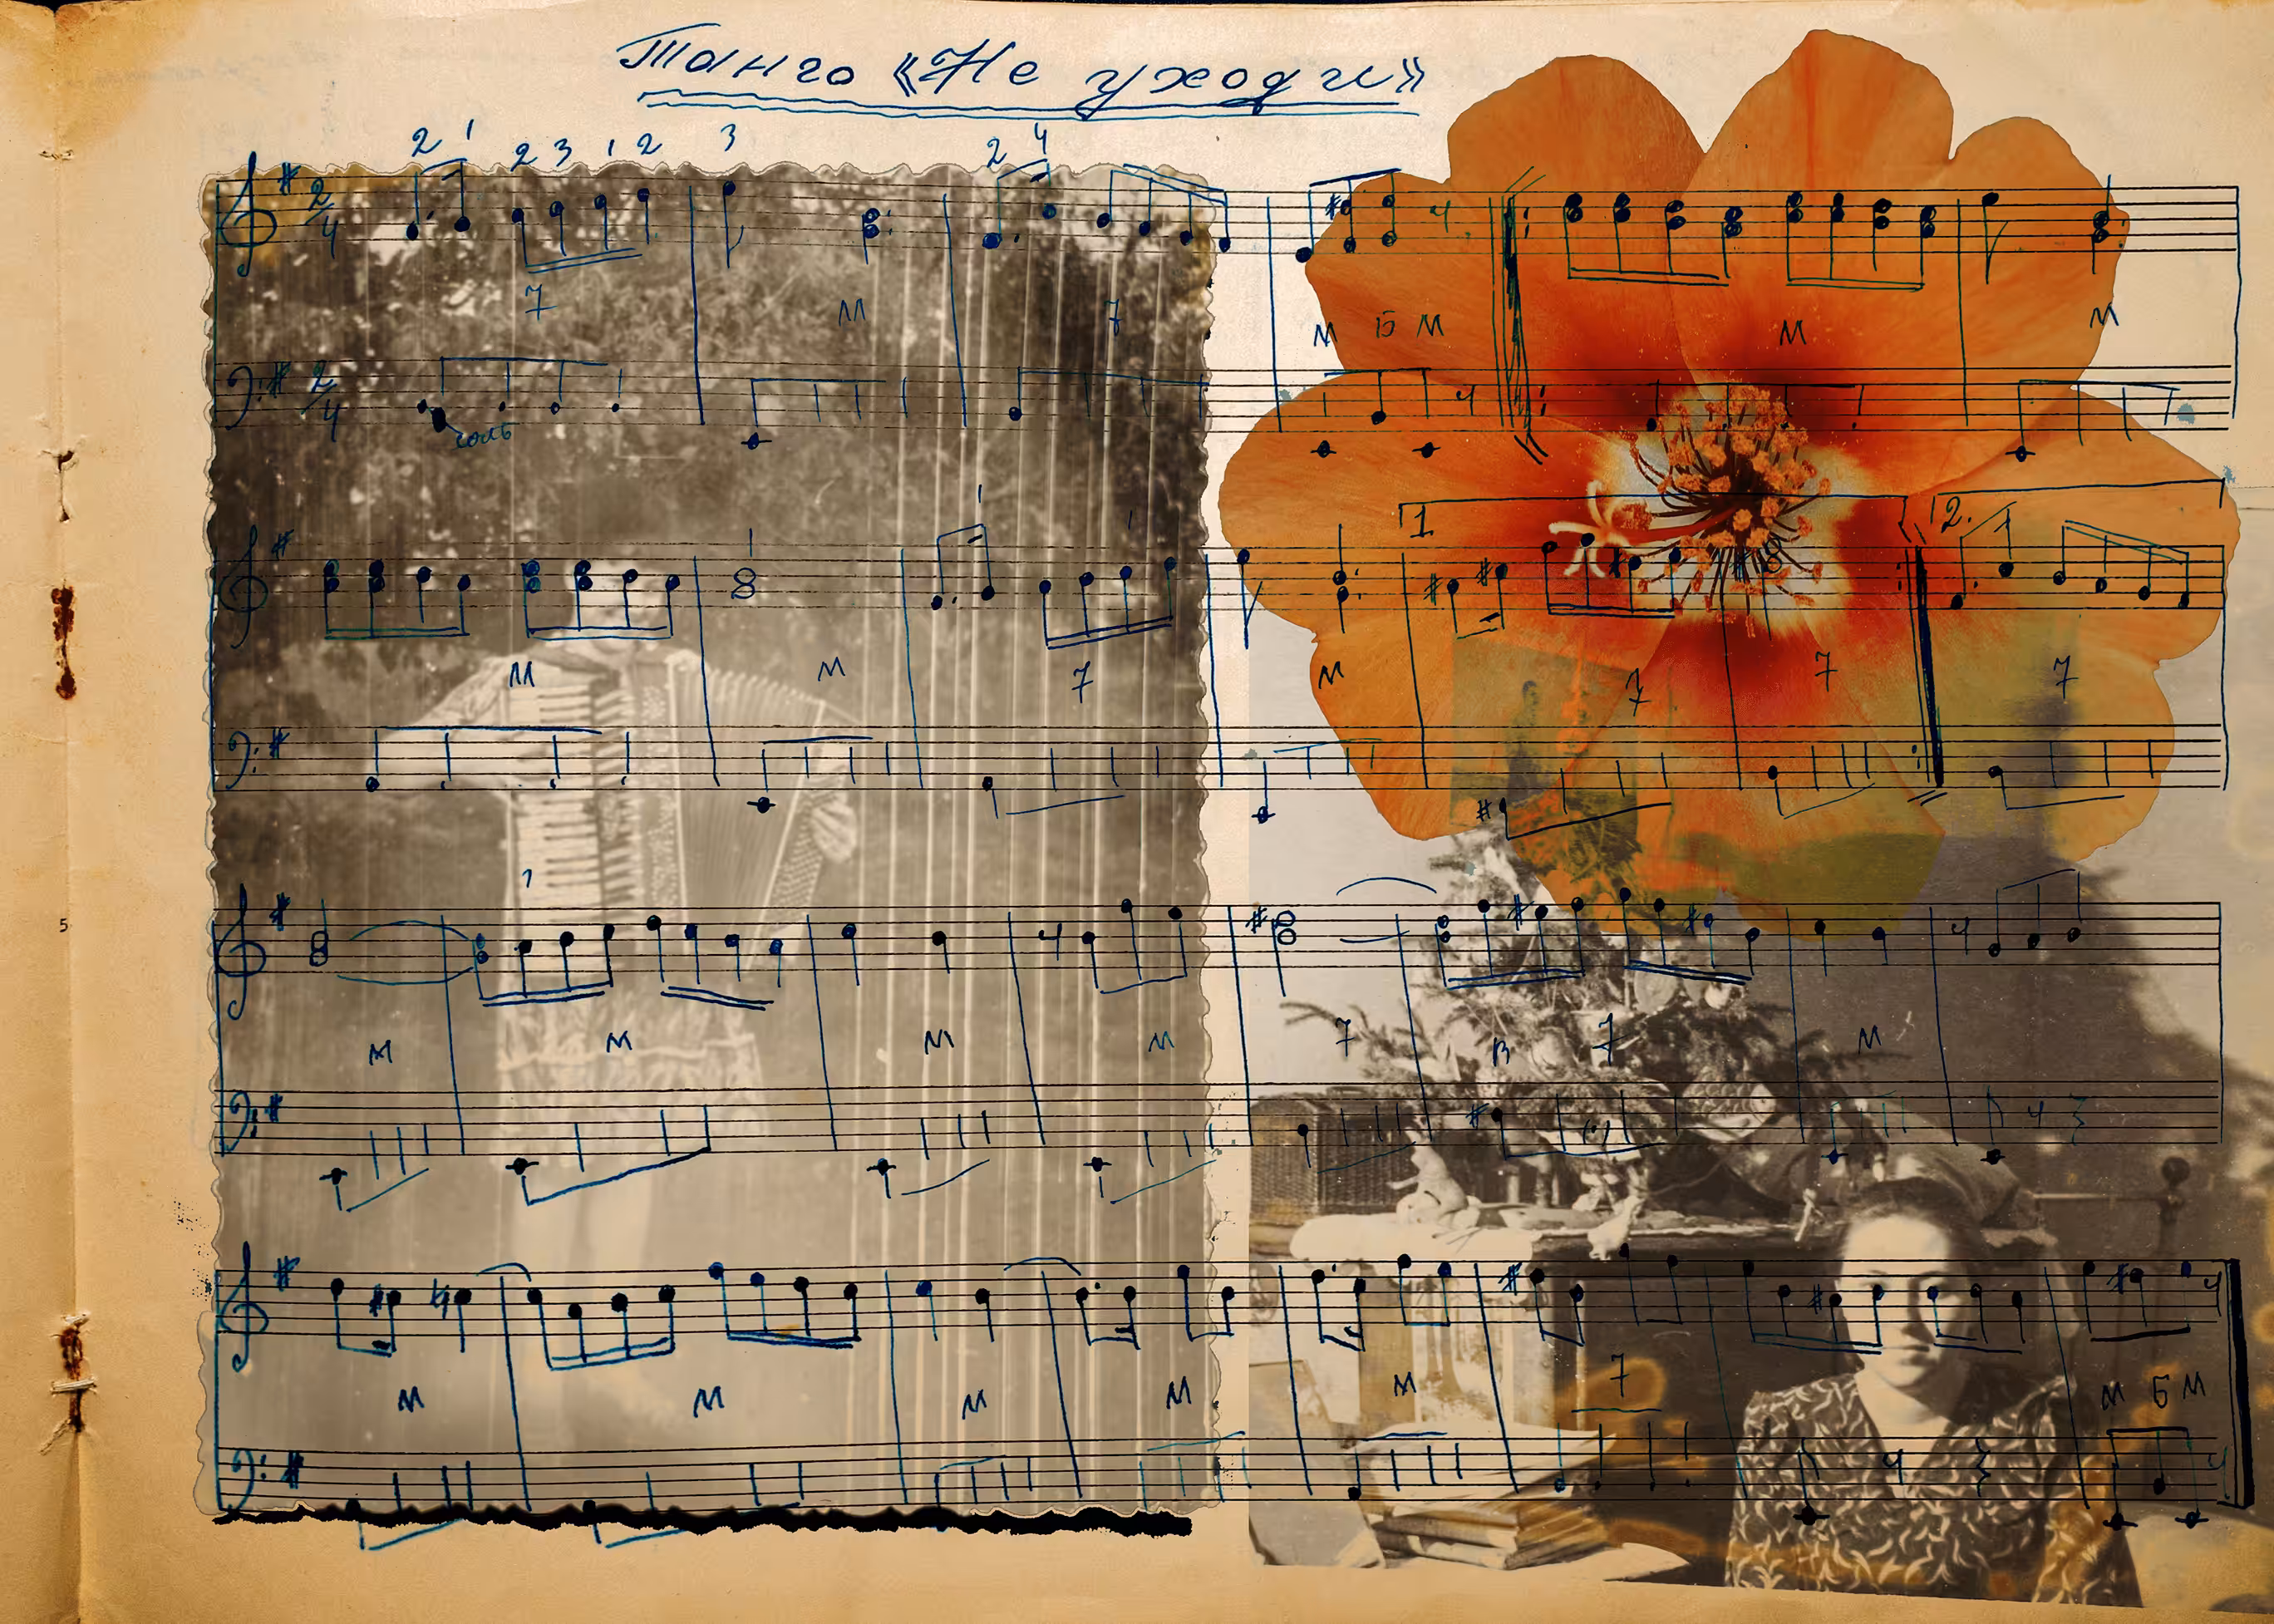 Танго «Не уходи»
2 1 2 3 1 2 3 2 4
2/4
7 М 7 М Б М М М
2/4
соль
1 1 1 2.
М М 7 М 7 7 7
5
М М М М 7 Б 7 М
М М М М М 7 М Б М